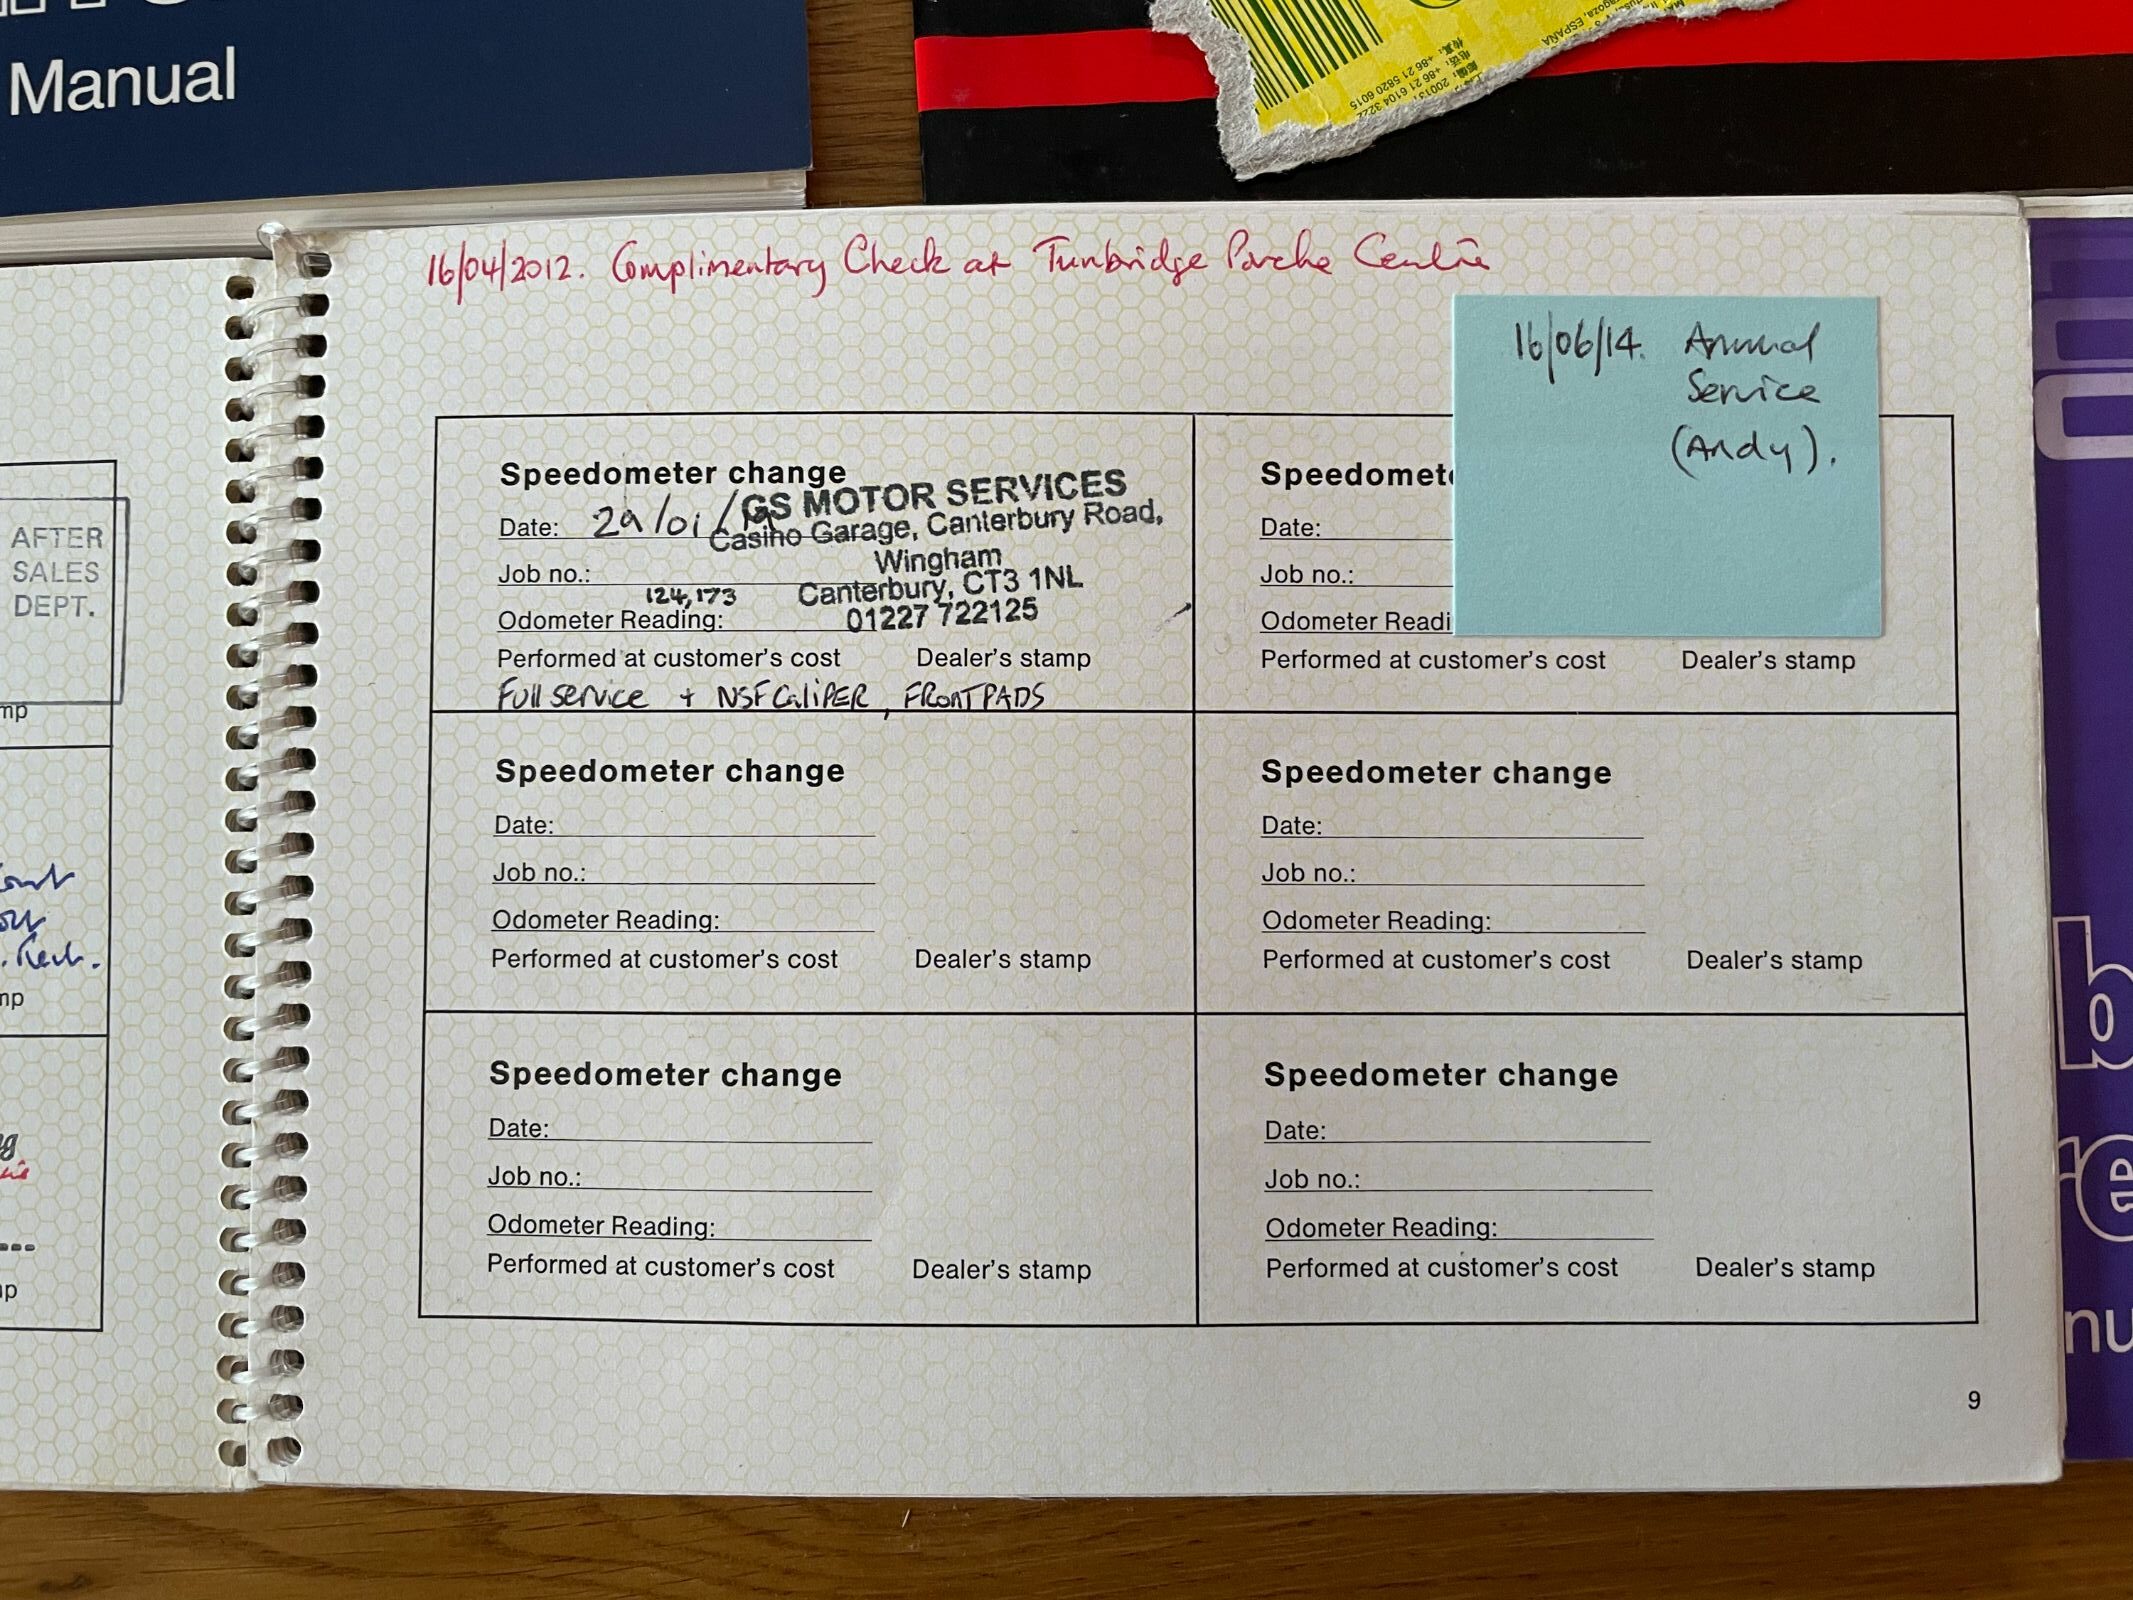 Manual
ragoza, ESPAÑA
+86 21 6104 3222
+86 21 5820 6015
16/04/2012. Complimentary Check at Tunbridge Porche Centre
16/06/14. Annual
Service
(Andy).
AFTER
SALES
DEPT.
mp
mp
Speedometer change
Date: 29/01/
Job no.:
124,173
Odometer Reading:
Performed at customer's cost Dealer's stamp
Full service + NSF CaliPER, FRONT PADS
GS MOTOR SERVICES
Casino Garage, Canterbury Road,
Wingham
Canterbury, CT3 1NL
01227 722125
Speedomet
Date:
Job no.:
Odometer Readi
Performed at customer's cost Dealer's stamp
Speedometer change
Date:
Job no.:
Odometer Reading:
Performed at customer's cost Dealer's stamp
Speedometer change
Date:
Job no.:
Odometer Reading:
Performed at customer's cost Dealer's stamp
Speedometer change
Date:
Job no.:
Odometer Reading:
Performed at customer's cost Dealer's stamp
Speedometer change
Date:
Job no.:
Odometer Reading:
Performed at customer's cost Dealer's stamp
9
b
re
nu